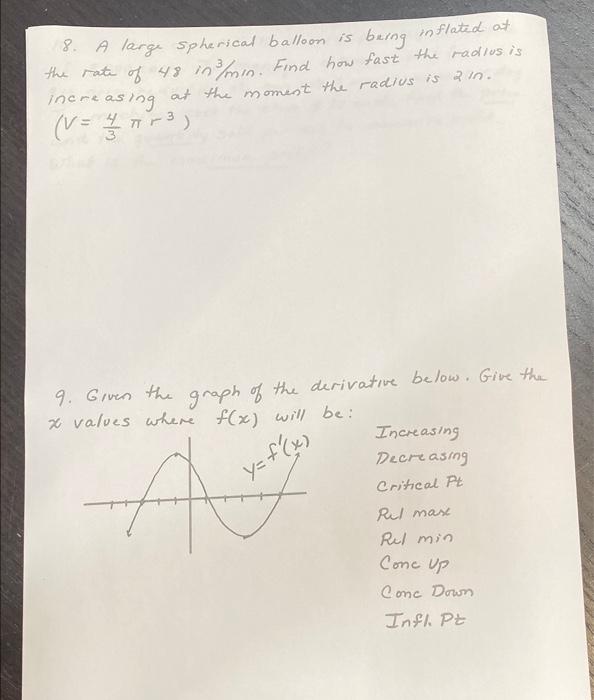 8. A large spherical balloon is being inflated at
the rate of 48 in³/min. Find how fast the radius is
increasing at the moment the radius is 2 in.
(V = 4/3 π r³)
9. Given the graph of the derivative below. Give the
x values where f(x) will be:
y = f'(x)
Increasing
Decreasing
Critical Pt
Rel max
Rel min
Conc Up
Conc Down
Infl. Pt